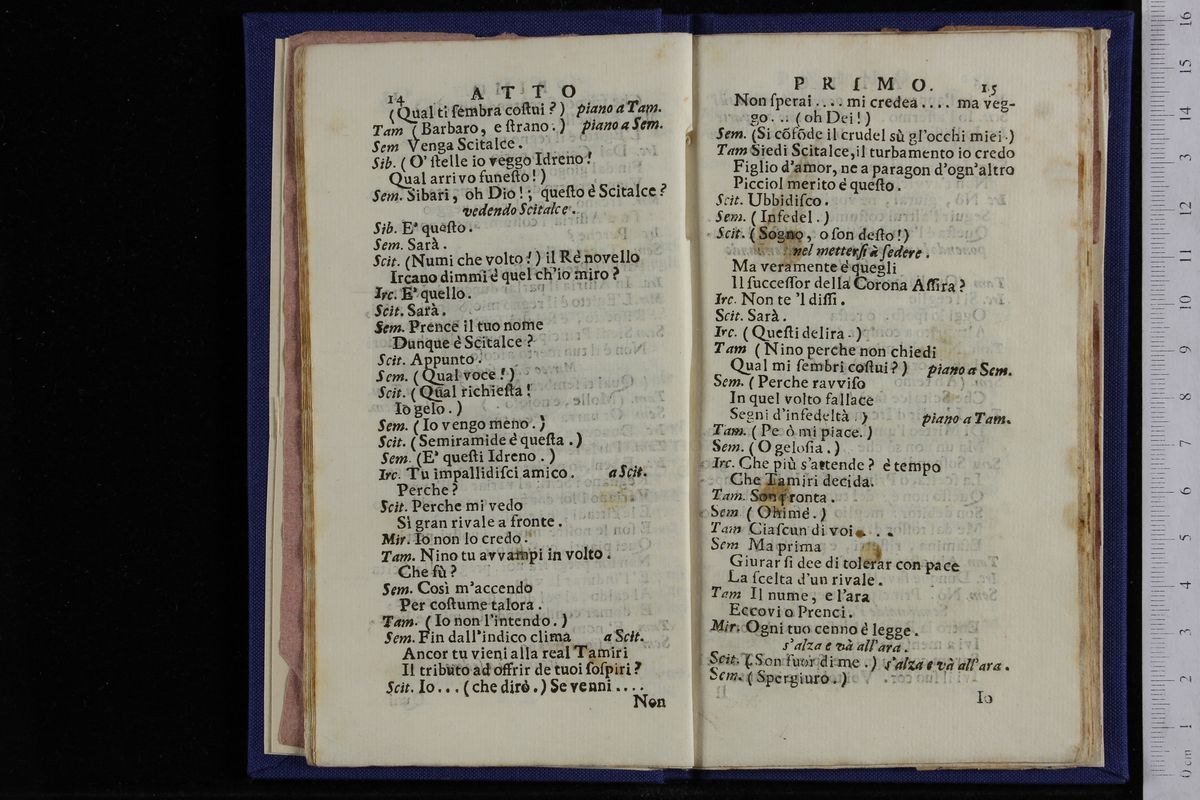 14 ATTO
(Qual ti ſembra coſtui ?) piano a Tam.
Tam (Barbaro, e ſtrano.) piano a Sem.
Sem Venga Scitalce.
Sib. (O' ſtelle io veggo Idreno!
Qual arrivo funeſto!)
Sem. Sibari, oh Dio!; queſto è Scitalce?
vedendo Scitalce.
Sib. E' queſto.
Sem. Sarà.
Scit. (Numi che volto!) il Rè novello
Ircano dimmi è quel ch'io miro?
Irc. E' quello.
Scit. Sarà.
Sem. Prence il tuo nome
Dunque è Scitalce?
Scit. Appunto.
Sem. (Qual voce!)
Scit. (Qual richieſta!
Io gelo.)
Sem. (Io vengo meno.)
Scit. (Semiramide è queſta.)
Sem. (E' queſti Idreno.)
Irc. Tu impallidiſci amico. a Scit.
Perche?
Scit. Perche mi vedo
Sì gran rivale a fronte.
Mir. Io non lo credo.
Tam. Nino tu avvampi in volto.
Che fù?
Sem. Così m'accendo
Per coſtume talora.
Tam. (Io non l'intendo.)
Sem. Fin dall'indico clima a Scit.
Ancor tu vieni alla real Tamiri
Il tributo ad offrir de tuoi ſoſpiri?
Scit. Io... (che dirò.) Se venni....
Non
PRIMO. 15
Non ſperai.... mi credea.... ma veg-
go... (oh Dei!)
Sem. (Si cōfōde il crudel sù gl'occhi miei.)
Tam Siedi Scitalce, il turbamento io credo
Figlio d'amor, ne a paragon d'ogn'altro
Picciol merito è queſto.
Scit. Ubbidiſco.
Sem. (Infedel.)
Scit. (Sogno, o ſon deſto!)
nel metterſi à ſedere.
Ma veramente è quegli
Il ſucceſſor della Corona Aſſira?
Irc. Non te 'l diſſi.
Scit. Sarà.
Irc. (Queſti delira.)
Tam (Nino perche non chiedi
Qual mi ſembri coſtui?) piano a Sem.
Sem. (Perche ravviſo
In quel volto fallace
Segni d'infedeltà.) piano a Tam.
Tam. (Pe ò mi piace.)
Sem. (O geloſia.)
Irc. Che più s'attende? è tempo
Che Tamiri decida.
Tam. Son pronta.
Sem (Ohimè.)
Tam Ciaſcun di voi...
Sem Ma prima
Giurar ſi dee di tolerar con pace
La ſcelta d'un rivale.
Tam Il nume, e l'ara
Eccovi o Prenci.
Mir. Ogni tuo cenno è legge.
s'alza e và all'ara.
Scit. (Son fuor di me.) s'alza e và all'ara.
Sem. (Spergiuro.)
Io